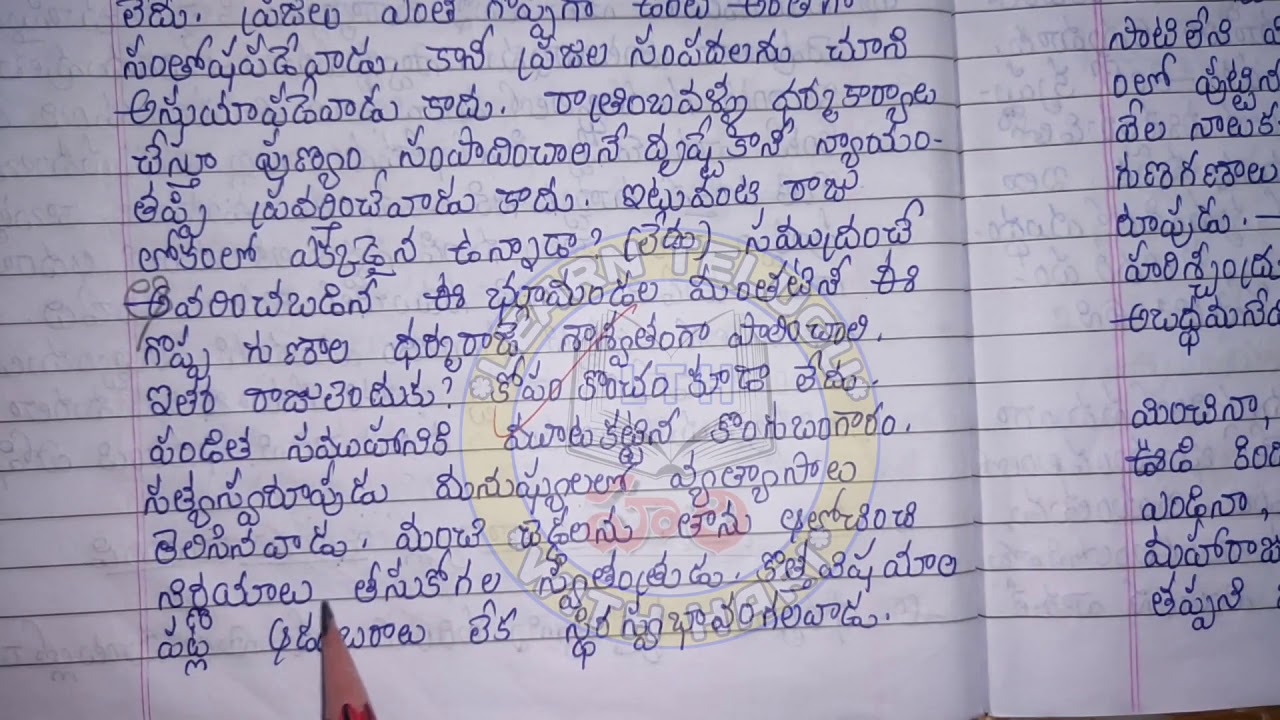 లేదు. ప్రజలు ఎంత గొప్పగా ఉంటే అంతగా
సంతోషపడేవాడు. కానీ ప్రజల సంపదలను చూసి
అసూయాపడేవాడు కాదు. రాత్రింబవళ్ళు ధర్మకార్యాలు
చేస్తూ పుణ్యం సంపాదించాలనే దృష్టికానీ న్యాయం-
తప్పి ప్రవర్తించేవాడు కాదు. ఇటువంటి రాజు
లోకంలో ఎక్కడైన ఉన్నాడా? (లేడు) సముద్రంచే
ఆవరించబడిన ఈ భూమండల మంతటిని ఈ
గొప్ప గుణాల ధర్మరాజే శాశ్వతంగా పాలించాలి.
ఇతర రాజులెందుకు? కోపం కొంచెం కూడా లేదు.
పండిత సమూహానికి చుట్టుకట్టిన కొంగుబంగారం.
సత్యస్వరూపుడు మనుష్యులలో వ్యత్యాసాలు
తెలిసినవాడు. మంచి చెడ్డలను తాను ఆలోచించి
నిర్ణయాలు తీసుకోగల స్వతంత్రుడు. కొత్త విషయాల
పట్ల లేక స్థిరస్వభావంగలవాడు.
సాటిలేని
లో పుట్టిన
వేల నాలుక
గుణగణాలు
రూపుడు. —
హరిశ్చంద్రు
అబద్ధమనేది
మించినా,
ఊడి కింద
ఎండినా,
మహారాజు
తప్పని
LEARN TELUGU
WITH